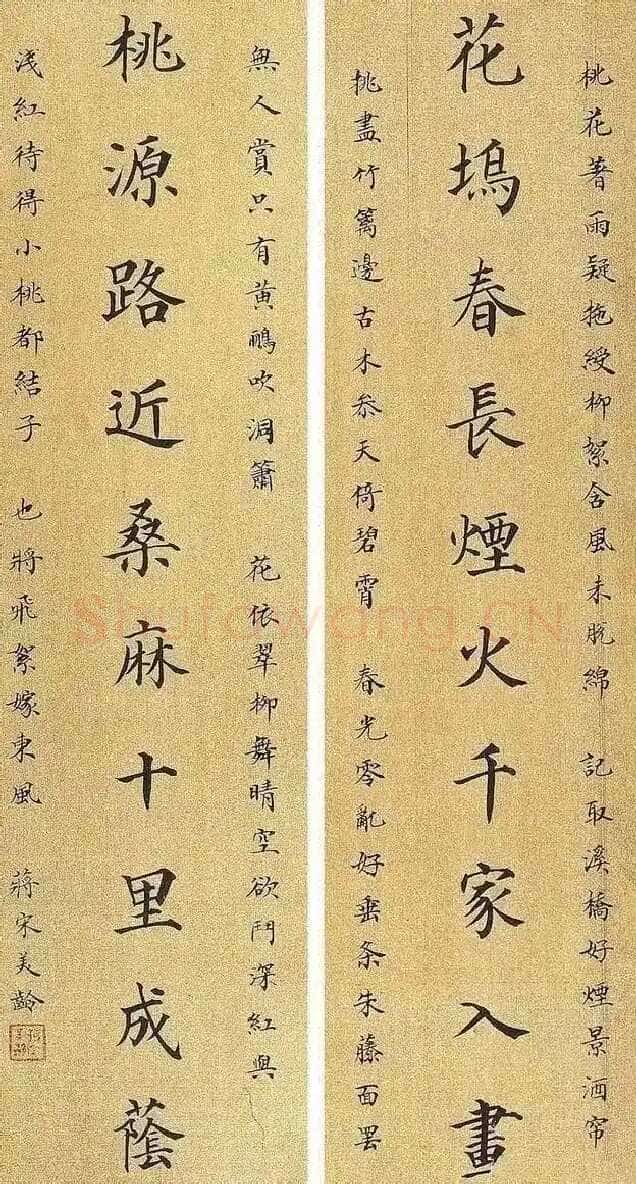 桃花著雨疑拖綬柳絮含風未脫綿　記取溪橋好煙景酒帘
花塢春長煙火千家入畫
挑盡竹籬邊古木參天倚碧霄　春光零亂好垂条朱藤面罢
無人賞只有黄鸝吹洞簫　花依翠柳舞晴空欲鬥深紅與
桃源路近桑麻十里成蔭
淺紅待得小桃都結子　也將飛絮嫁東風　蔣宋美齡
Shufawang.CN